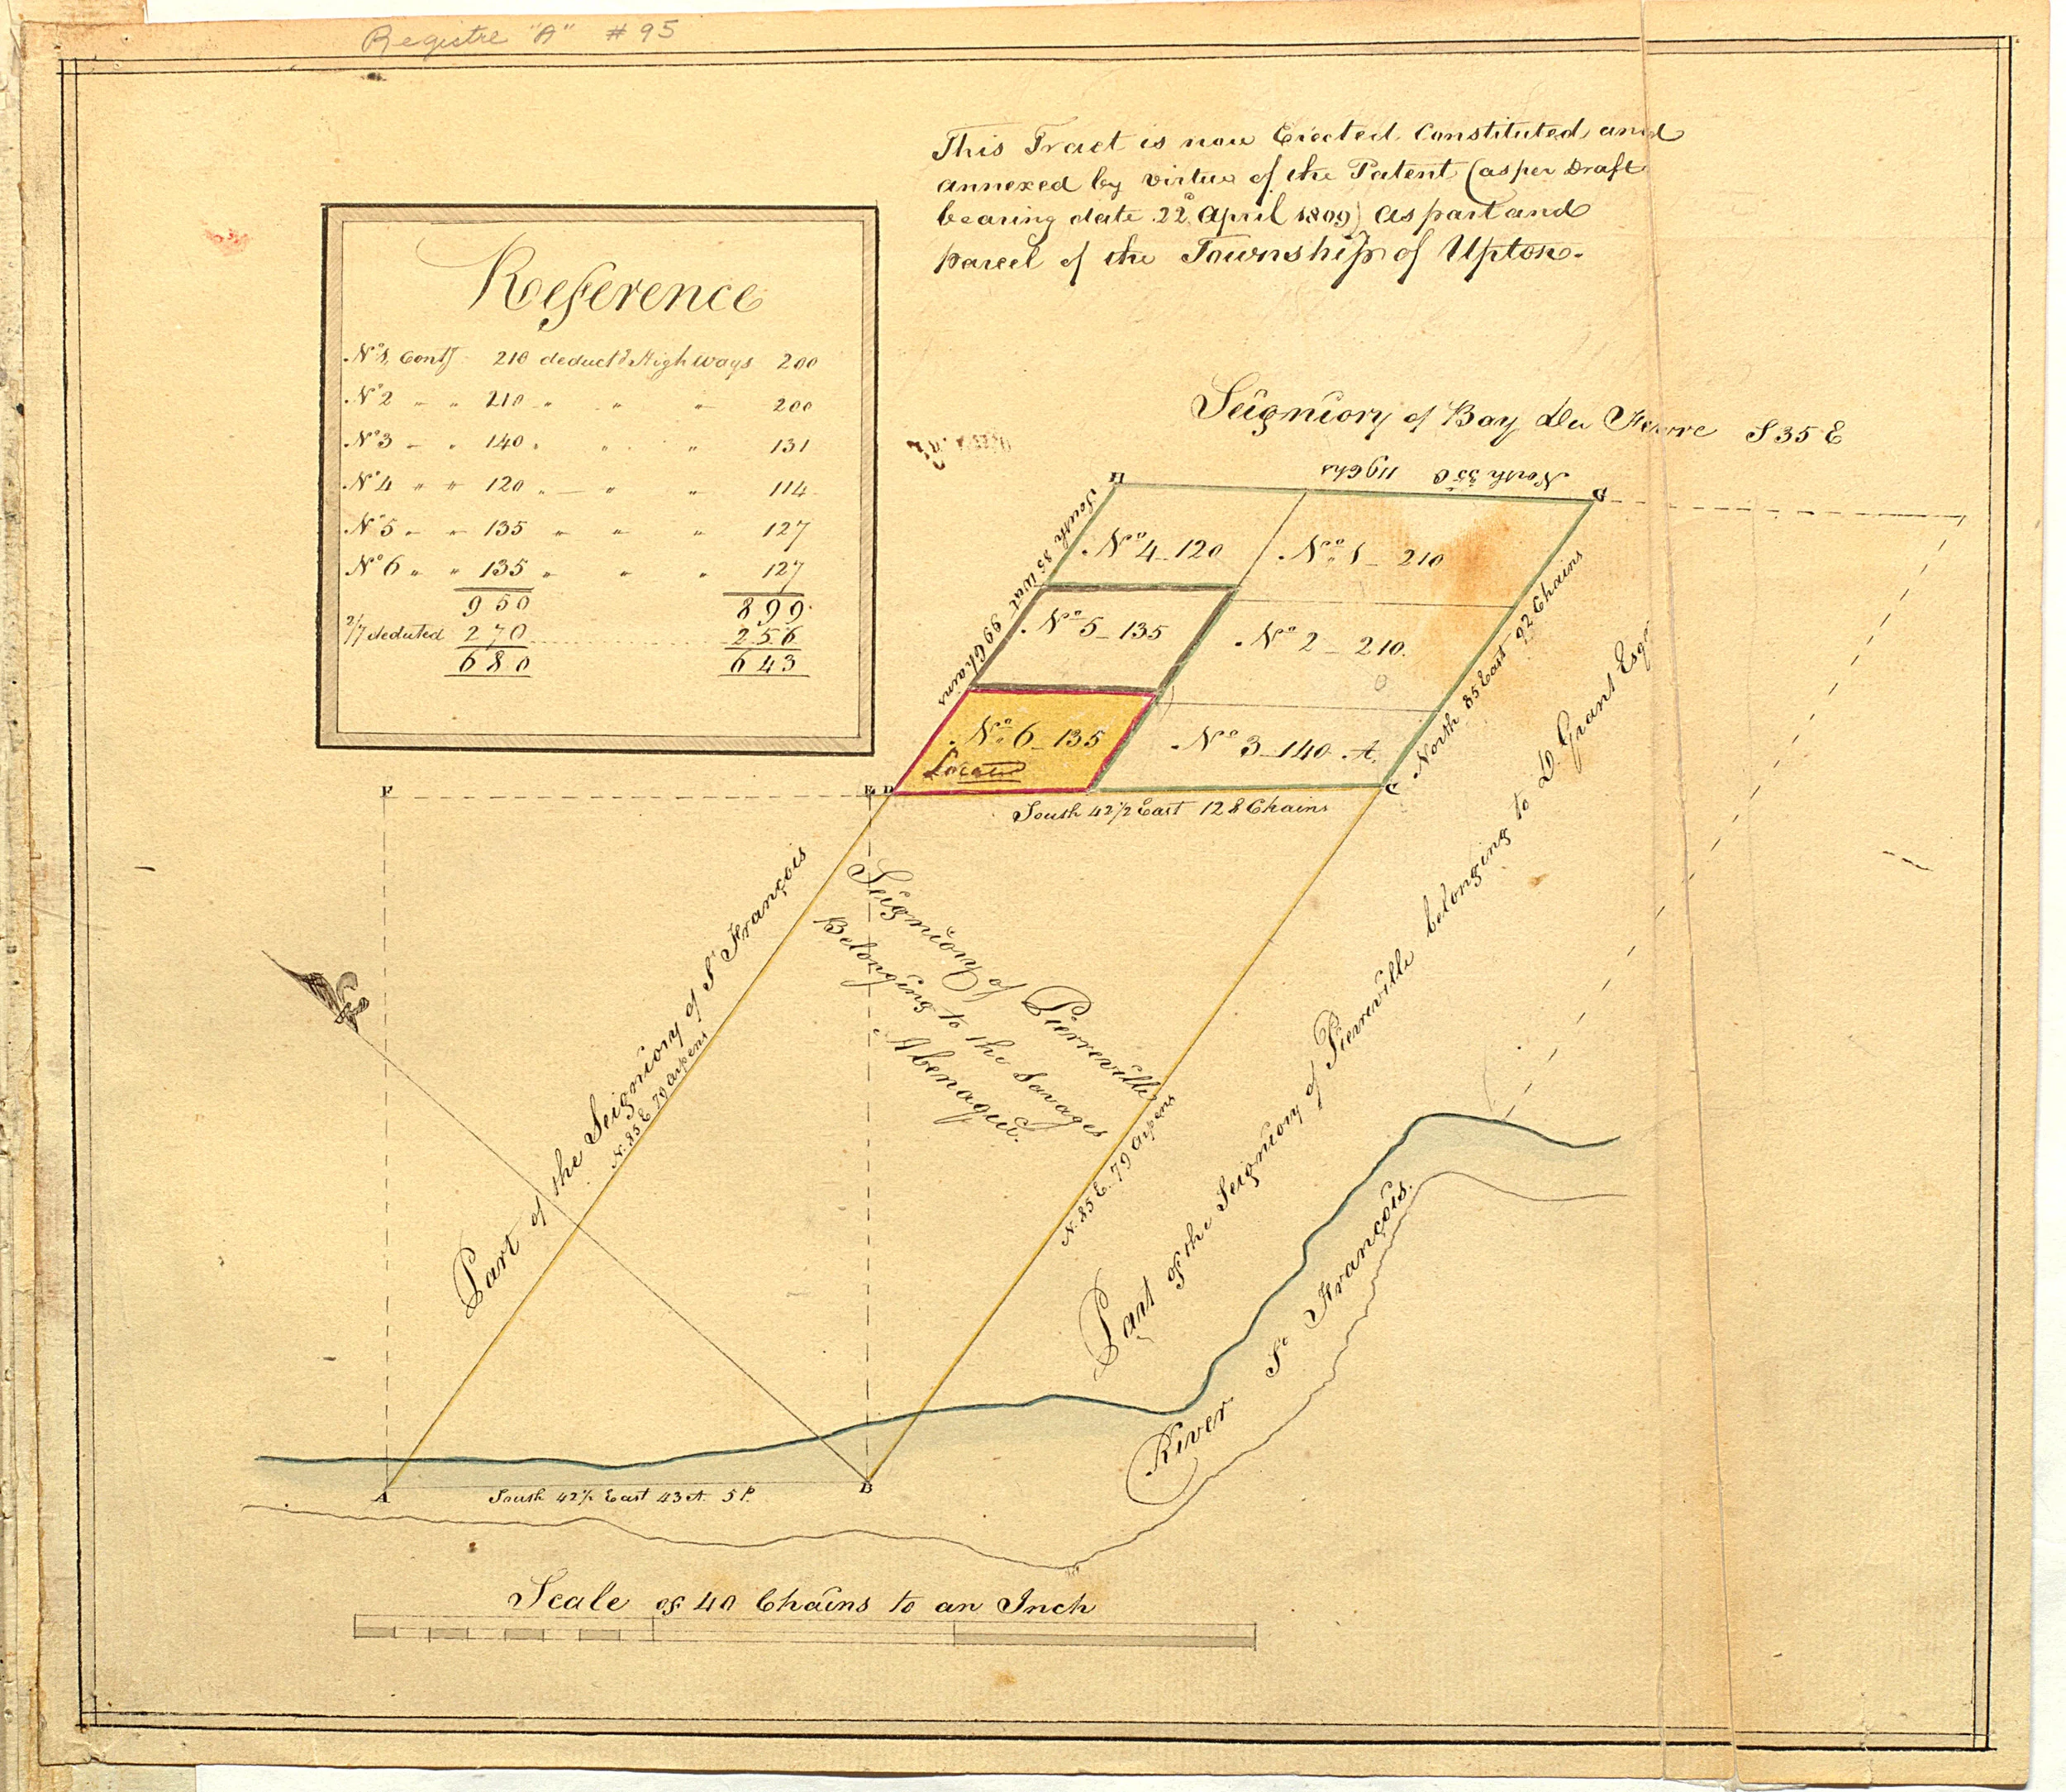 Registre "A" # 95
This Tract is now Erected Constituted and
annexed by virtue of the Patent (as per Draft
bearing date 22d April 1809) as part and
parcel of the Township of Upton.
Reference
No 1, Contg 210 deductg High Ways 200
No 2 " " 210 " " " 200
No 3 " " 140 " " " 131
No 4 " " 120 " " " 114
No 5 " " 135 " " " 127
No 6 " " 135 " " " 127
950 899
2/7 deducted 270 256
680 643
Seigniory of Bay du Febvre S 35 E
North 35 O 119 Chs
H
G
South 85 West 99 Chains
No 4 - 120
No 1 - 210
No 5 - 135
No 2 - 210.
No 6 - 135
Located
No 3 - 140 A.
North 85 East 92 Chains
F
E D
C
South 42 1/2 East 128 Chains
Part of the Seigniory of St François
N. 85 E 79 arpens
Seigniory of Pierreville
Belonging to the Savages
Abenaquis.
N. 85 E. 79 Arpens
Part of the Seigniory of Pierreville belonging to D. Grant Esqr
River St François.
A
B
South 42 1/2 East 43 A. 5 P.
Scale of 40 Chains to an Inch